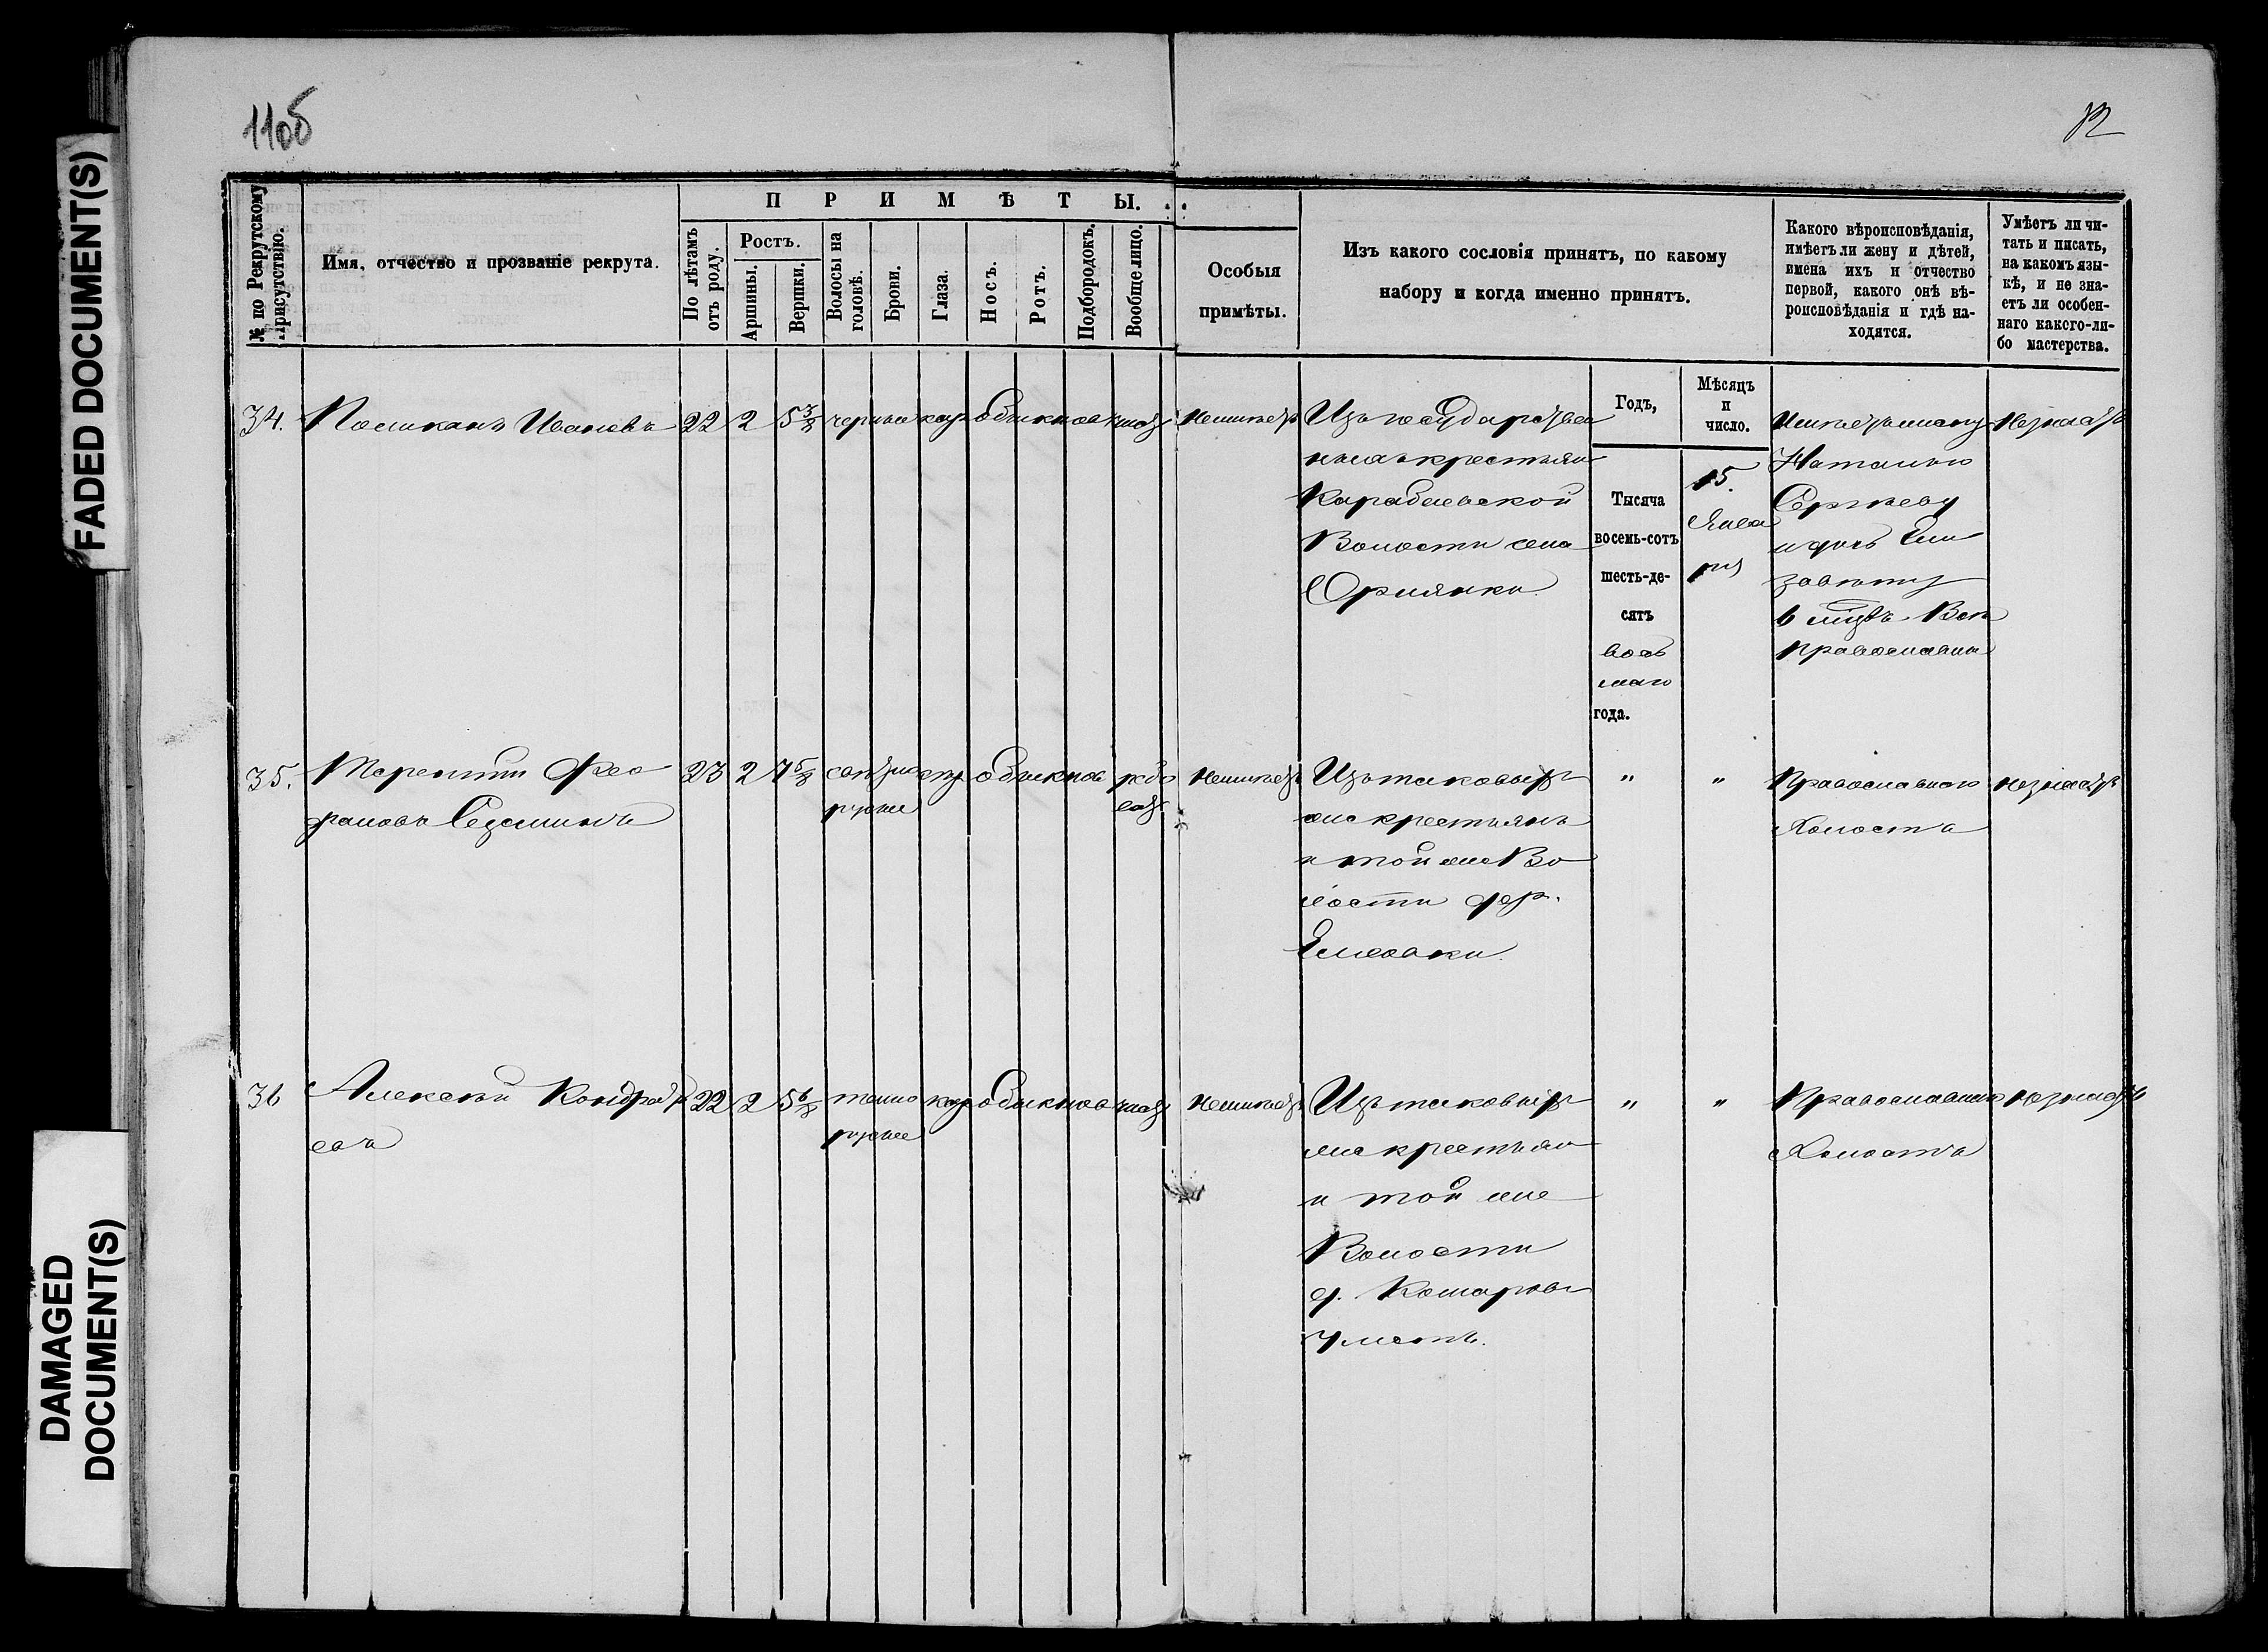 FADED DOCUMENT(S)
DAMAGED
DOCUMENT(S)
11об
12
№ по Рекрутскому
Присутствію.
Имя, отчество и прозваніе рекрута.
ПРИМѢТЫ.
По лѣтамъ
отъ роду.
Ростъ.
Аршины.
Вершки.
Волосы на
головѣ.
Брови.
Глаза.
Носъ.
Ротъ.
Подбородокъ.
Вообще лицо.
Особыя
примѣты.
Изъ какого сословія принятъ, по какому
набору и когда именно принятъ.
Какого вѣроисповѣданія,
имѣетъ ли жену и дѣтей,
имена ихъ и отчество
первой, какого онѣ вѣ-
роисповѣданія и гдѣ на-
ходятся.
Умѣетъ ли чи-
тать и писать,
на какомъ язы-
кѣ, и не зна-
етъ ли особен-
наго какого-ли-
бо мастерства.
Годъ,
Мѣсяцъ
и
число.
34. Поликапъ Ивановъ 22 2 5 3/8 черные кар обыкнов чист Неимѣетъ
Изъ государствен
ныхъ крестьян
Карабаевской
Волости села
Орлянки
Тысяча
восемь-сотъ
шесть-де-
сятъ
вось
маго
года.
15.
Янва
ря
Имѣетъ жену
Наталью
Сергѣеву
и дочь Ели
завѣту
6 мѣс. Всѣ
православны
Незнаетъ
35. Терентій Фео
фановъ 23 2 7 5/8 свѣтло сер обыкнов рябо Неимѣетъ
русые
ват
Изъ таковыхъ
же крестьянъ
и той же Во
лости дер.
" "
Православного
Холостъ
незнаетъ
36 Алексѣй Кондрать 22 2 5 6/8 темно кар обыкнов чист Неимѣетъ
евъ
русые
Изъ таковыхъ
же крестьян
и той же
Волости
д.
" "
Православного
Холостъ
незнаетъ